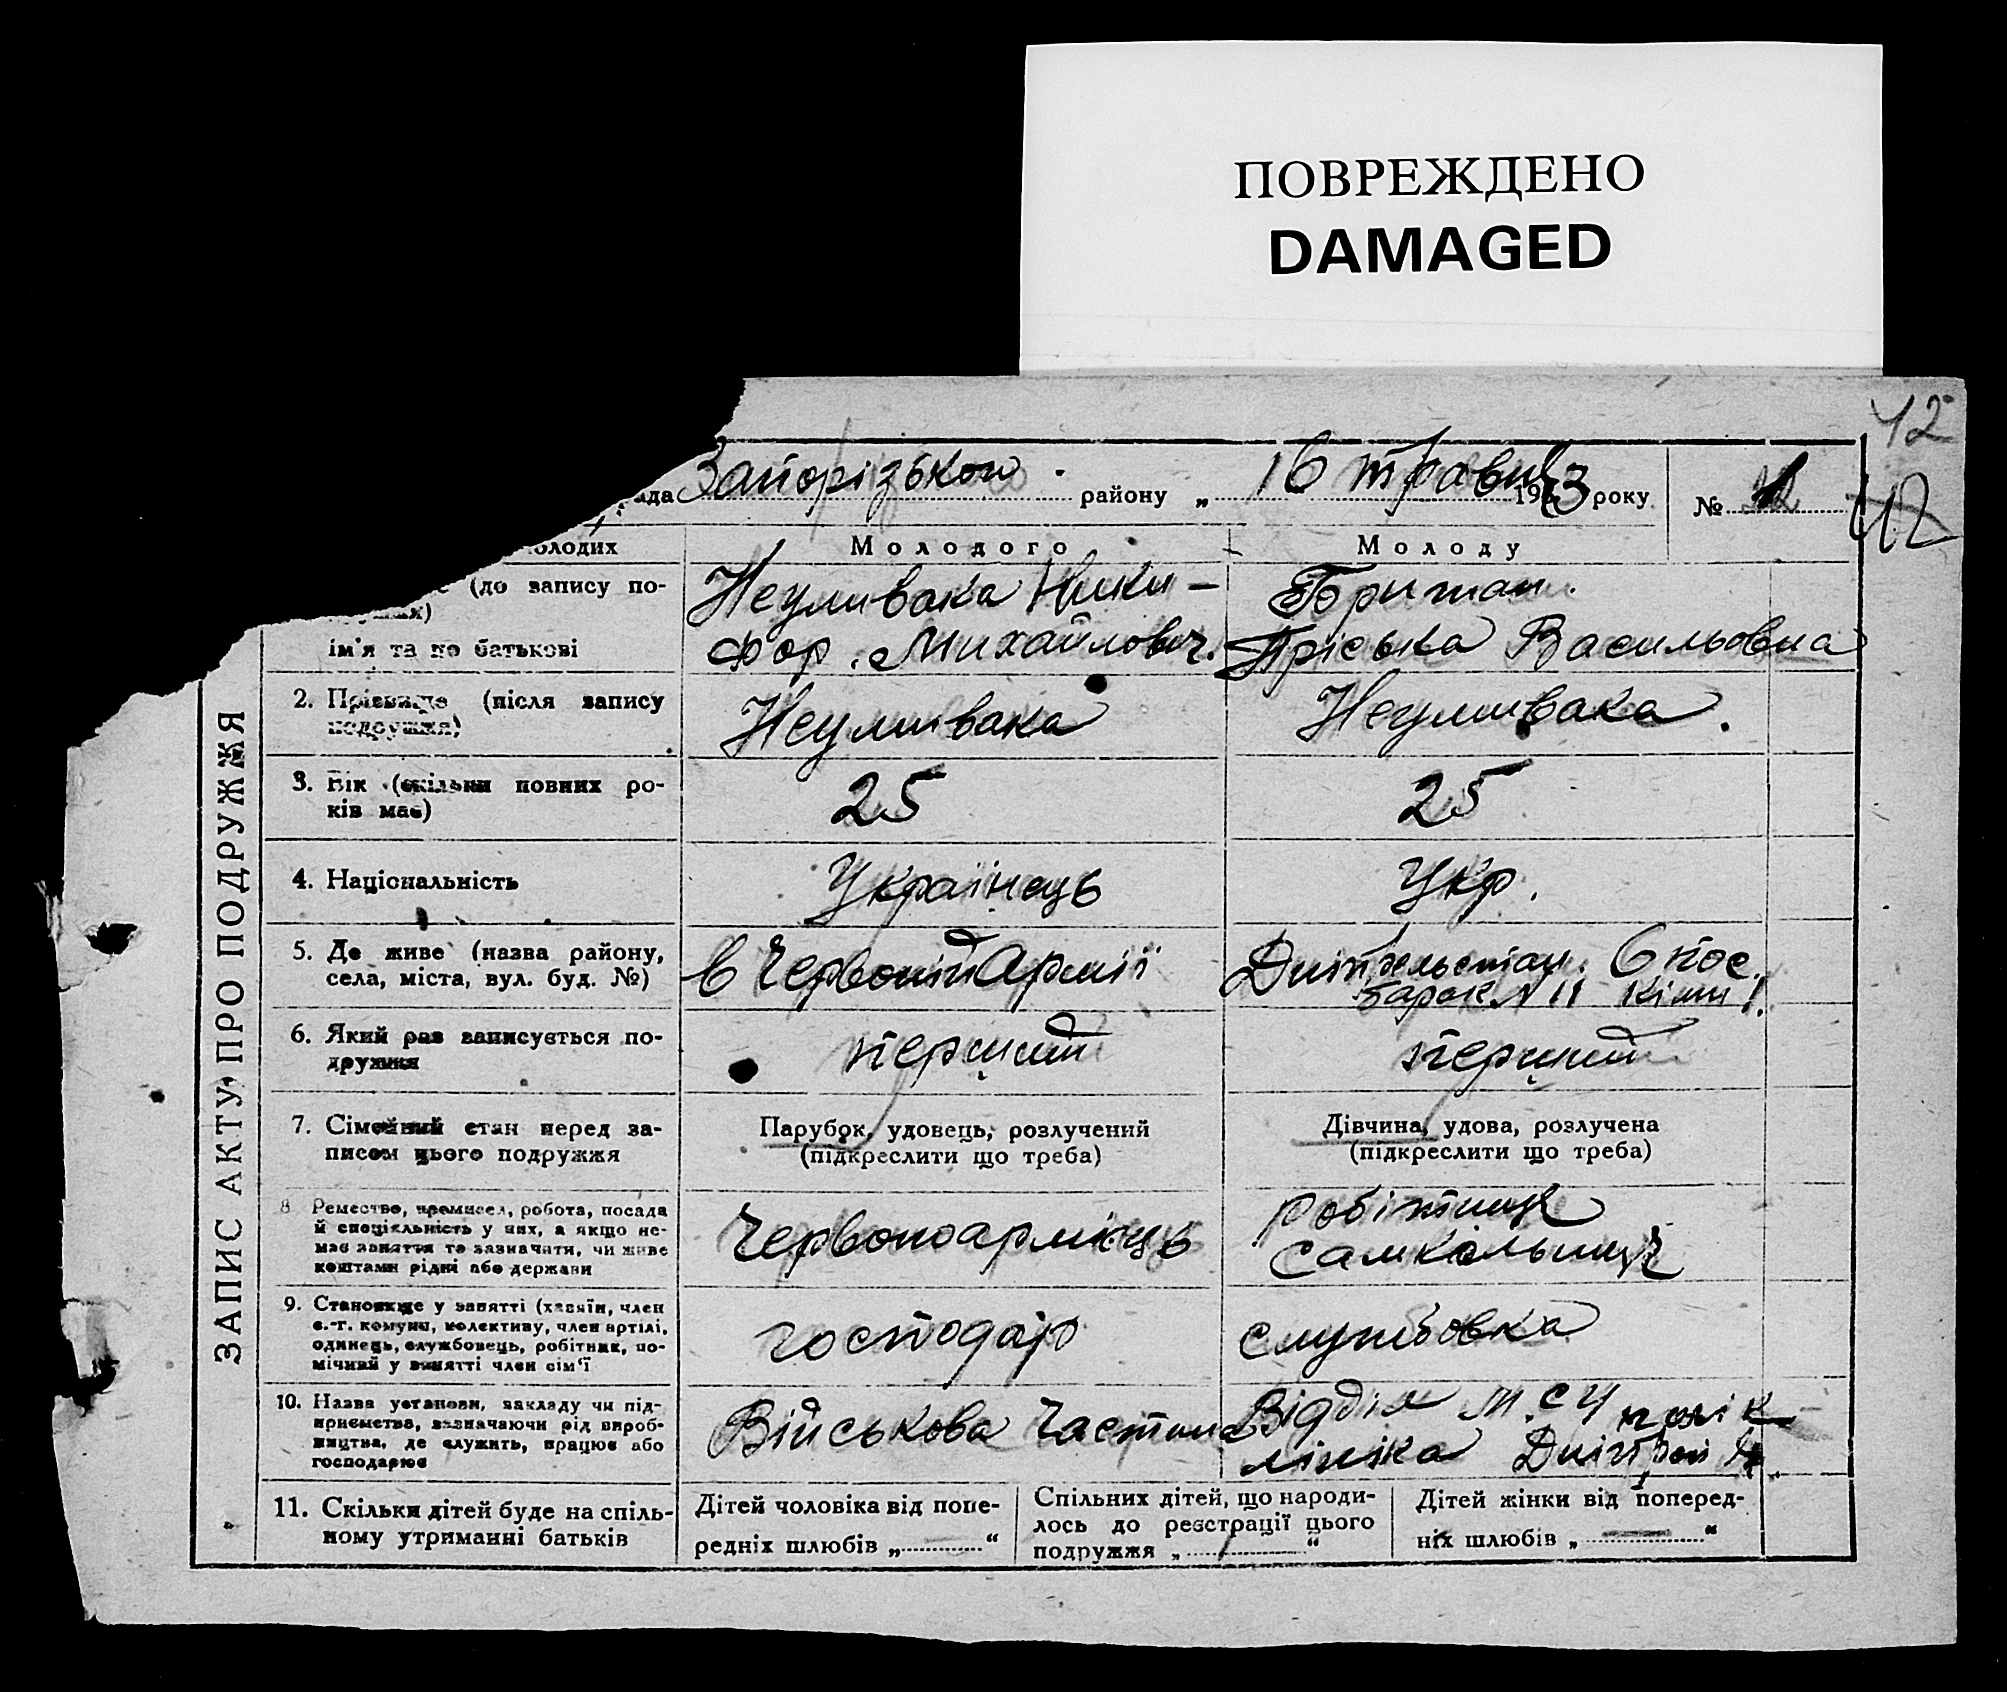 ПОВРЕЖДЕНО
DAMAGED
42
Запорізького району „ 16 травня 1933 року
№
42
Молодого
Молоду
(до запису по-
ім'я та по батькові
Неуливака Ники-
фор. Михайлович.
Пріська Васильовна
2. Прізвище (після запису
подружжя)
Неуливака
Неуливака.
3. Вік (скільки повних ро-
ків має)
25
25
4. Національність
Українець
Укр.
5. Де живе (назва району,
села, міста, вул. буд. №)
в Червоній Армії
6 пос.
барак № 11 кімн 1.
6. Який раз записується по-
дружжя
перший
перший
7. Сімейний стан перед за-
писом цього подружжя
Парубок, удовець, розлучений
(підкреслити що треба)
Дівчина, удова, розлучена
(підкреслити що треба)
8. Ремество, промисел, робота, посада
й спеціяльність у них, а якщо не-
має заняття то зазначити, чи живе
коштами рідні або держави
Червоноармієць
робітниця
9. Становище у занятті (хазяїн, член
с.-г. комуни, колективу, член артілі,
одинець, службовець, робітник, по-
мічний у занятті член сім'ї
господар
службовка
10. Назва установи, закладу чи під-
приємства, зазначаючи рід вироб-
ництва, де служить, працює або
господарює
Військова Частина
Відділ полік
лініка
11. Скільки дітей буде на спіль-
ному утриманні батьків
Дітей чоловіка від попе-
редніх шлюбів „ — “
Спільних дітей, що народи-
лось до реєстрації цього
подружжя „ “
Дітей жінки від поперед-
ніх шлюбів „ — “
ЗАПИС АКТУ ПРО ПОДРУЖЖЯ